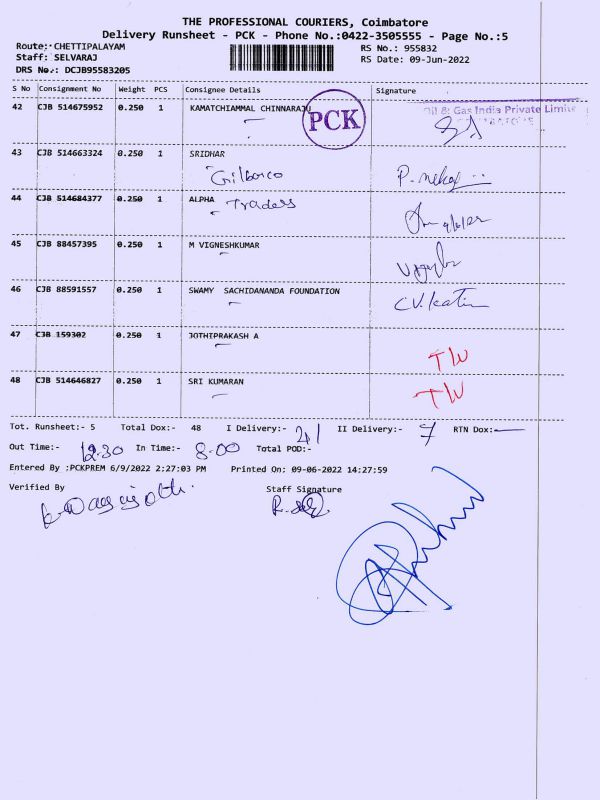 THE PROFESSIONAL COURIERS, Coimbatore
Delivery Runsheet - PCK - Phone No.:0422-3505555 - Page No.:5
Route: CHETTIPALAYAM RS No.: 955832
Staff: SELVARAJ RS Date: 09-Jun-2022
DRS No.: DCJB95583205
S No Consignment No Weight PCS Consignee Details Signature
42 CJB 514675952 0.250 1 KAMATCHIAMMAL CHINNARAJU
PCK
Oil & Gas India Private Limite
43 CJB 514663324 0.250 1 SRIDHAR
44 CJB 514684377 0.250 1 ALPHA Traders
45 CJB 88457395 0.250 1 M VIGNESHKUMAR
46 CJB 88591557 0.250 1 SWAMY SACHIDANANDA FOUNDATION
47 CJB 159302 0.250 1 JOTHIPRAKASH A
T/W
48 CJB 514646827 0.250 1 SRI KUMARAN
T/W
Tot. Runsheet:- 5 Total Dox:- 48 I Delivery:- 41 II Delivery:- 7 RTN Dox:-
Out Time:- 12.30 In Time:- 8.00 Total POD:-
Entered By :PCKPREM 6/9/2022 2:27:03 PM Printed On: 09-06-2022 14:27:59
Verified By Staff Signature